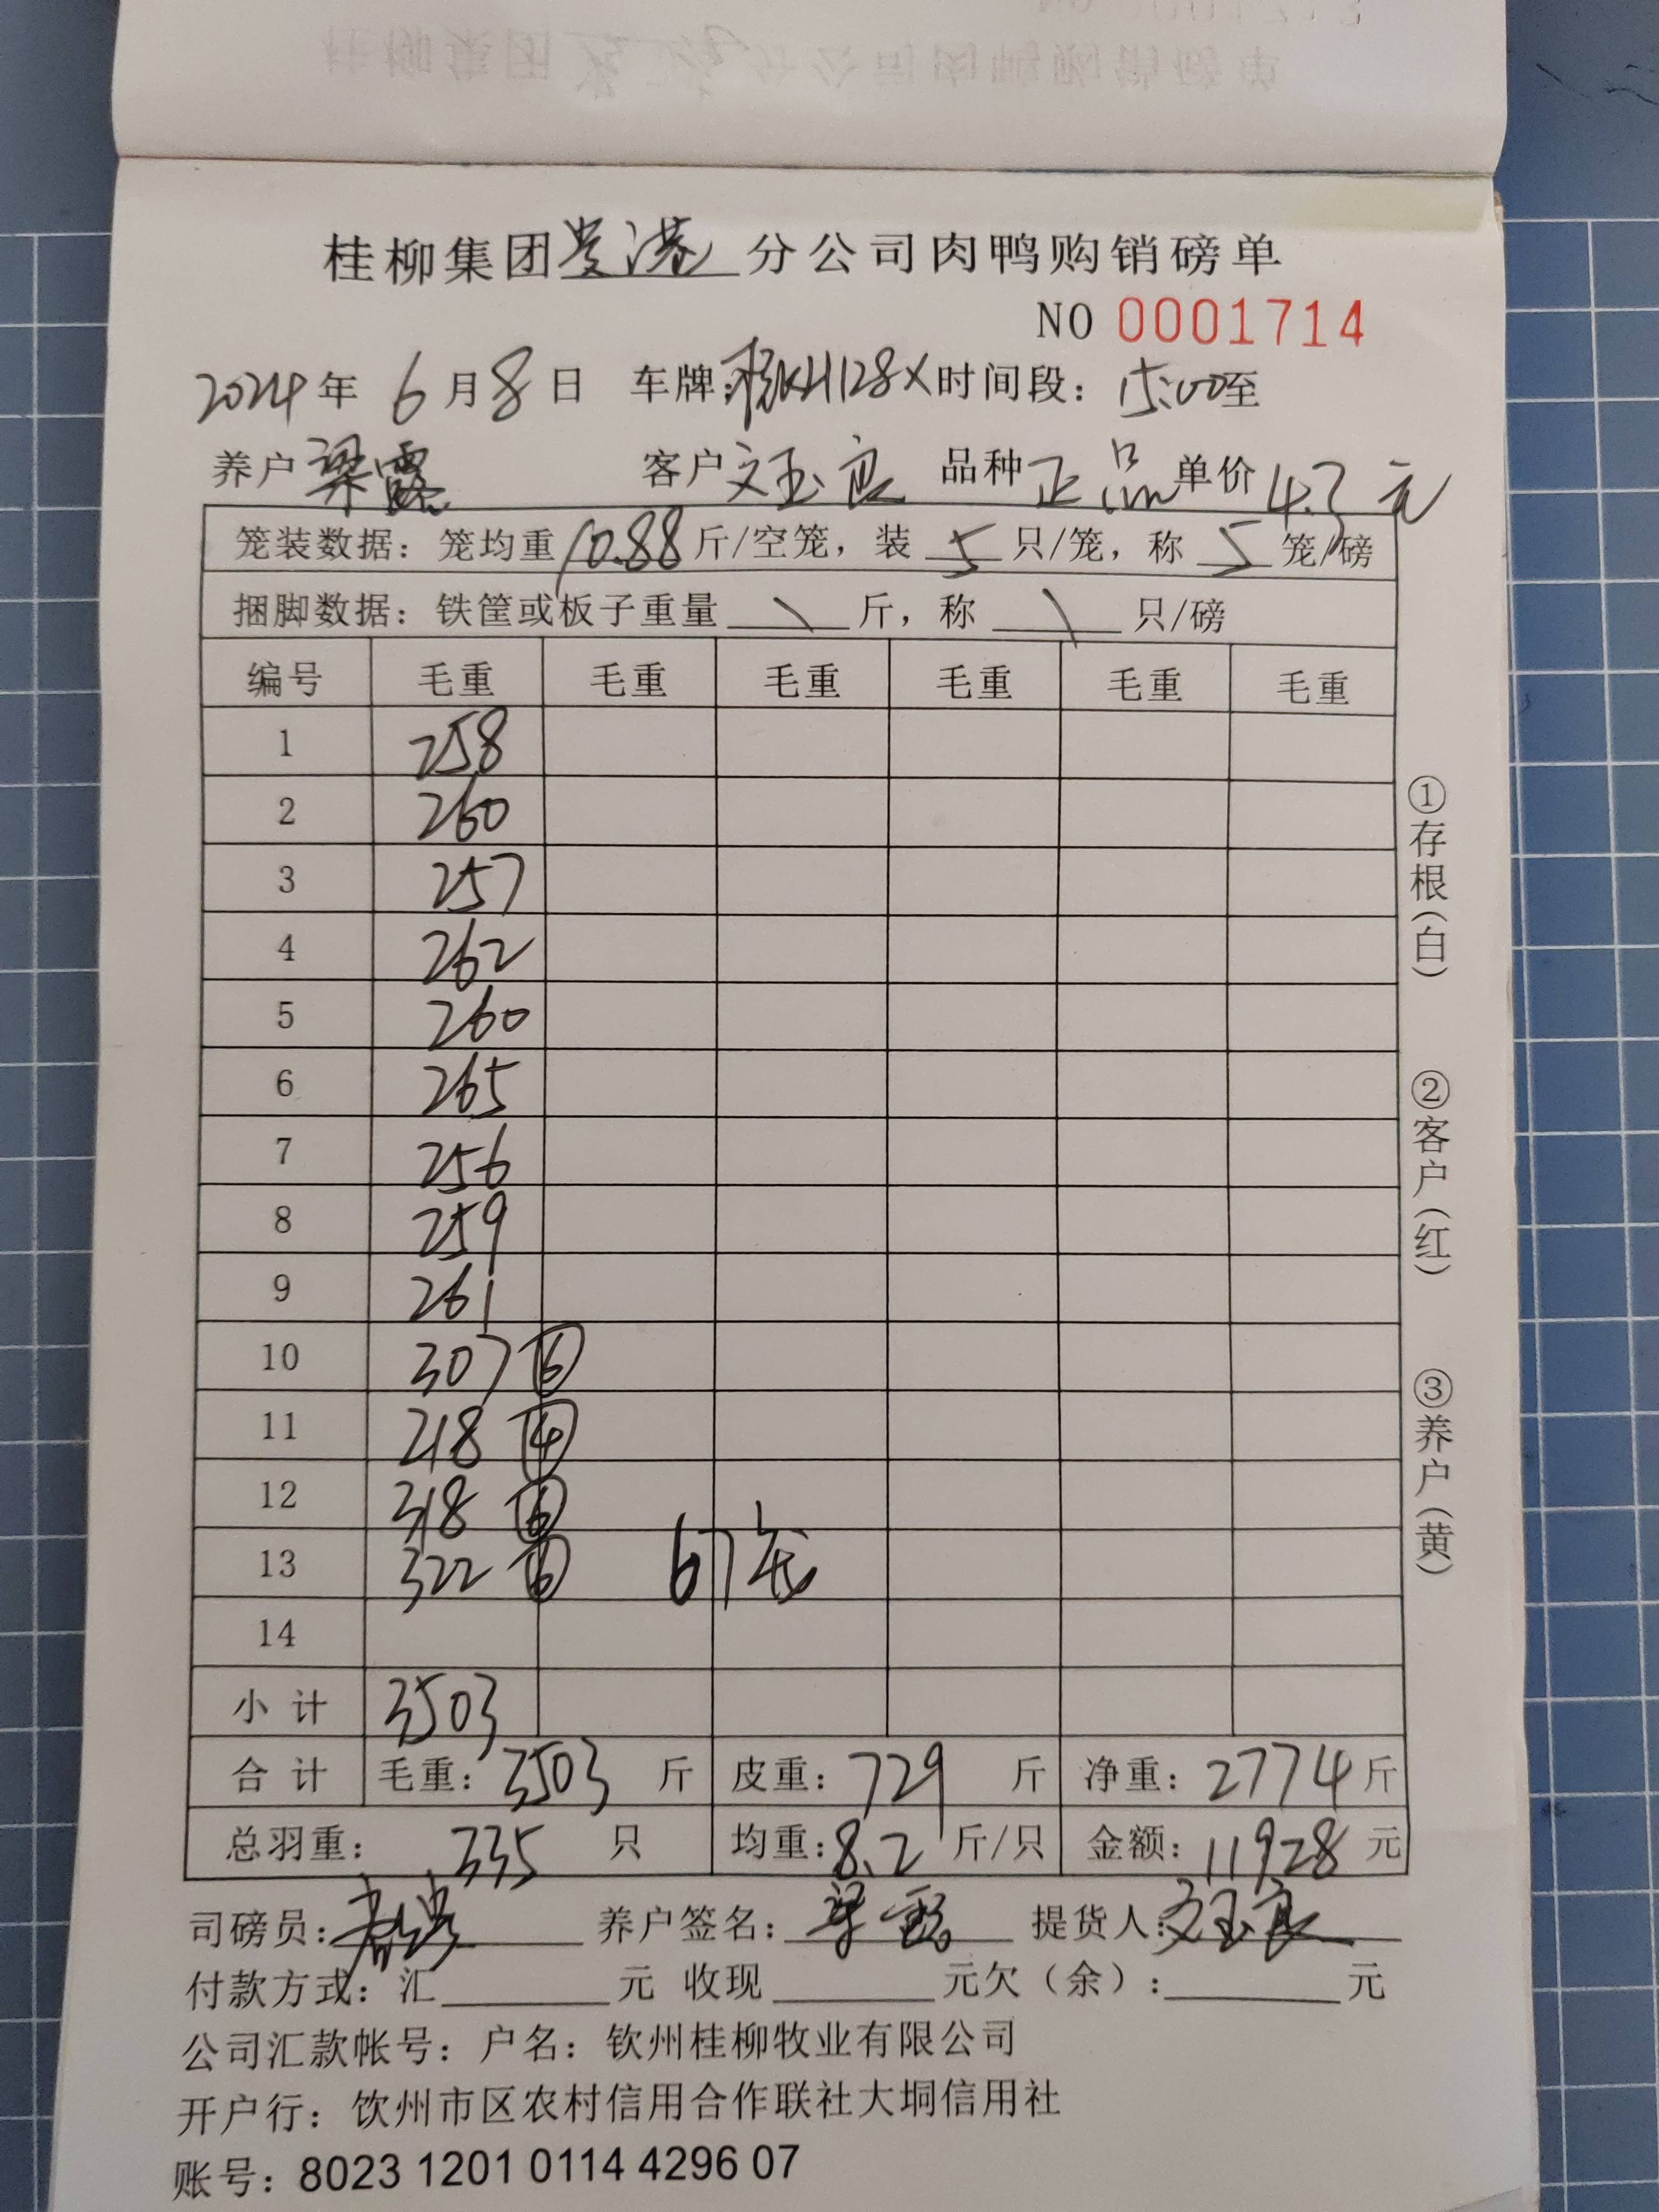 桂柳集团贵港分公司肉鸭购销磅单
NO 0001714
2024年6月8日 车牌:桂KH128X时间段：15:00至
养户梁露 客户文玉良 品种正品单价4.3元
笼装数据：笼均重10.88斤/空笼，装5只/笼，称5笼/磅
捆脚数据：铁筐或板子重量\斤，称\只/磅
编号 毛重 毛重 毛重 毛重 毛重 毛重
1 258
2 260
3 257
4 262
5 260
6 265
7 256
8 259
9 261
10 307 ⑥
11 218 ④
12 318 ⑥
13 322 ⑥ 67笼
14
小计 3503
合计 毛重：3503斤 皮重：729斤 净重：2774斤
总羽重：335只 均重：8.2斤/只 金额：11928元
司磅员： 养户签名：梁露 提货人：文玉良
付款方式：汇 元 收现 元欠（余）： 元
公司汇款帐号：户名：钦州桂柳牧业有限公司
开户行：饮州市区农村信用合作联社大垌信用社
账号：8023 1201 0114 4296 07
①存根(白) ②客户(红) ③养户(黄)